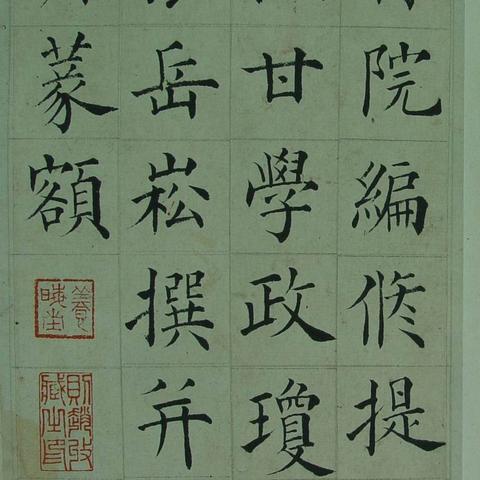 院編修提
甘學政瓊
岳崧撰并
篆額